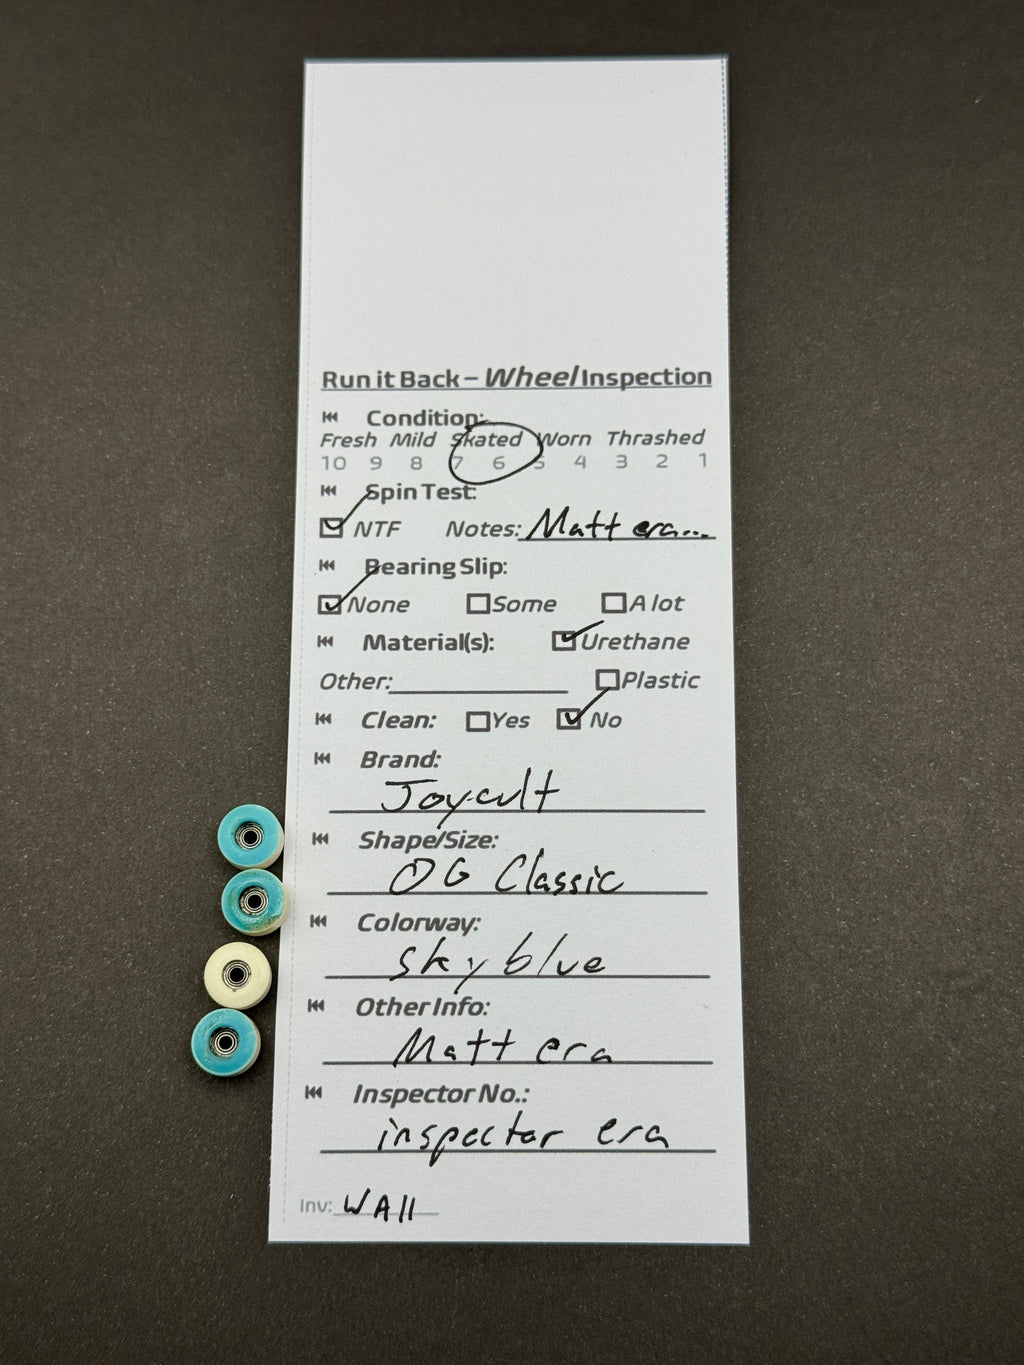 Run it Back – Wheel Inspection
Condition:
Fresh Mild Skated Worn Thrashed
10 9 8 7 6 5 4 3 2 1
Spin Test:
NTF Notes: Matt era...
Bearing Slip:
None Some A lot
Material(s): Urethane
Other: Plastic
Clean: Yes No
Brand:
Joycult
Shape/Size:
OG Classic
Colorway:
Sky blue
Other Info:
Matt era
Inspector No.:
inspector era
Inv: WAll